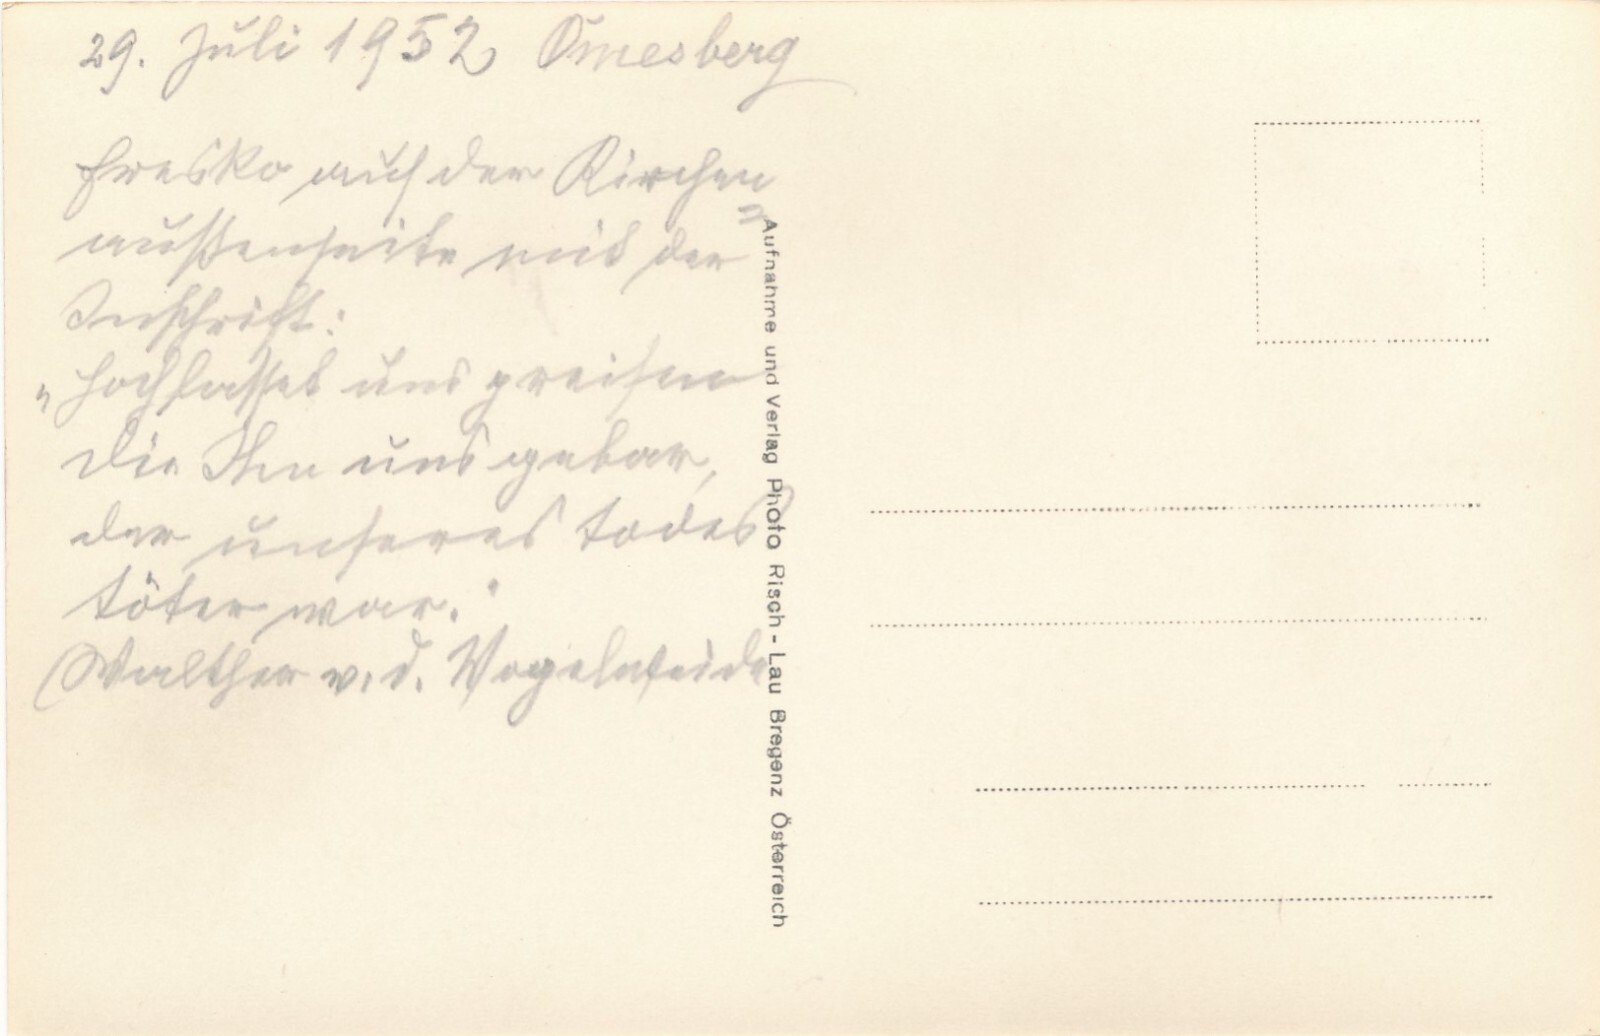 29. Juli 1952 Omesberg
Fresko auf der Kirchen=
außenseite mit der
Inschrift:
„Hochlasset uns preisen
die Ihn uns gebar,
der unseres Todes
töter war."
(Walther v. d. Vogelweide
Aufnahme und Verlag Photo Risch - Lau Bregenz Österreich